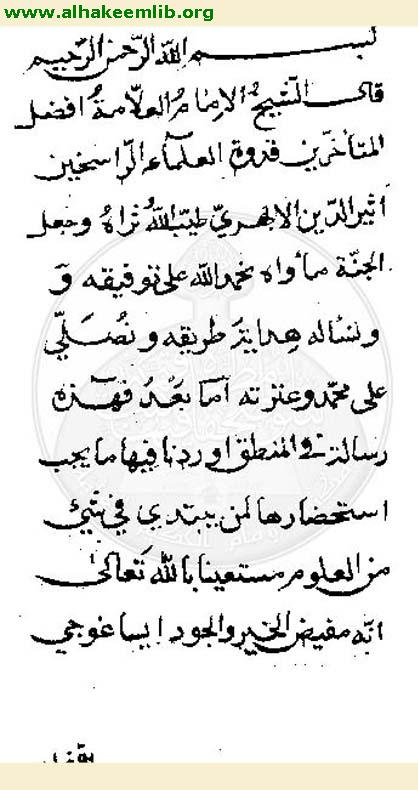 www.alhakeemlib.org
بسم الله الرحمن الرحيم
قال الشيخ الإمام العلامة افضل
المتأخرين قدوة العلماء الراسخين
أثير الدين الابهري طيب الله ثراه وجعل
الجنة مأواه نحمد الله على توفيقه و
ونسأله هداية طريقه ونصلي
على محمد وعترته أما بعد فهذه
رسالة في المنطق اوردنا فيها ما يجب
استحضارها لمن يبتدي في شيئ
من العلوم مستعينا بالله تعالى
انه مفيض الخير والجود ايساغوجي